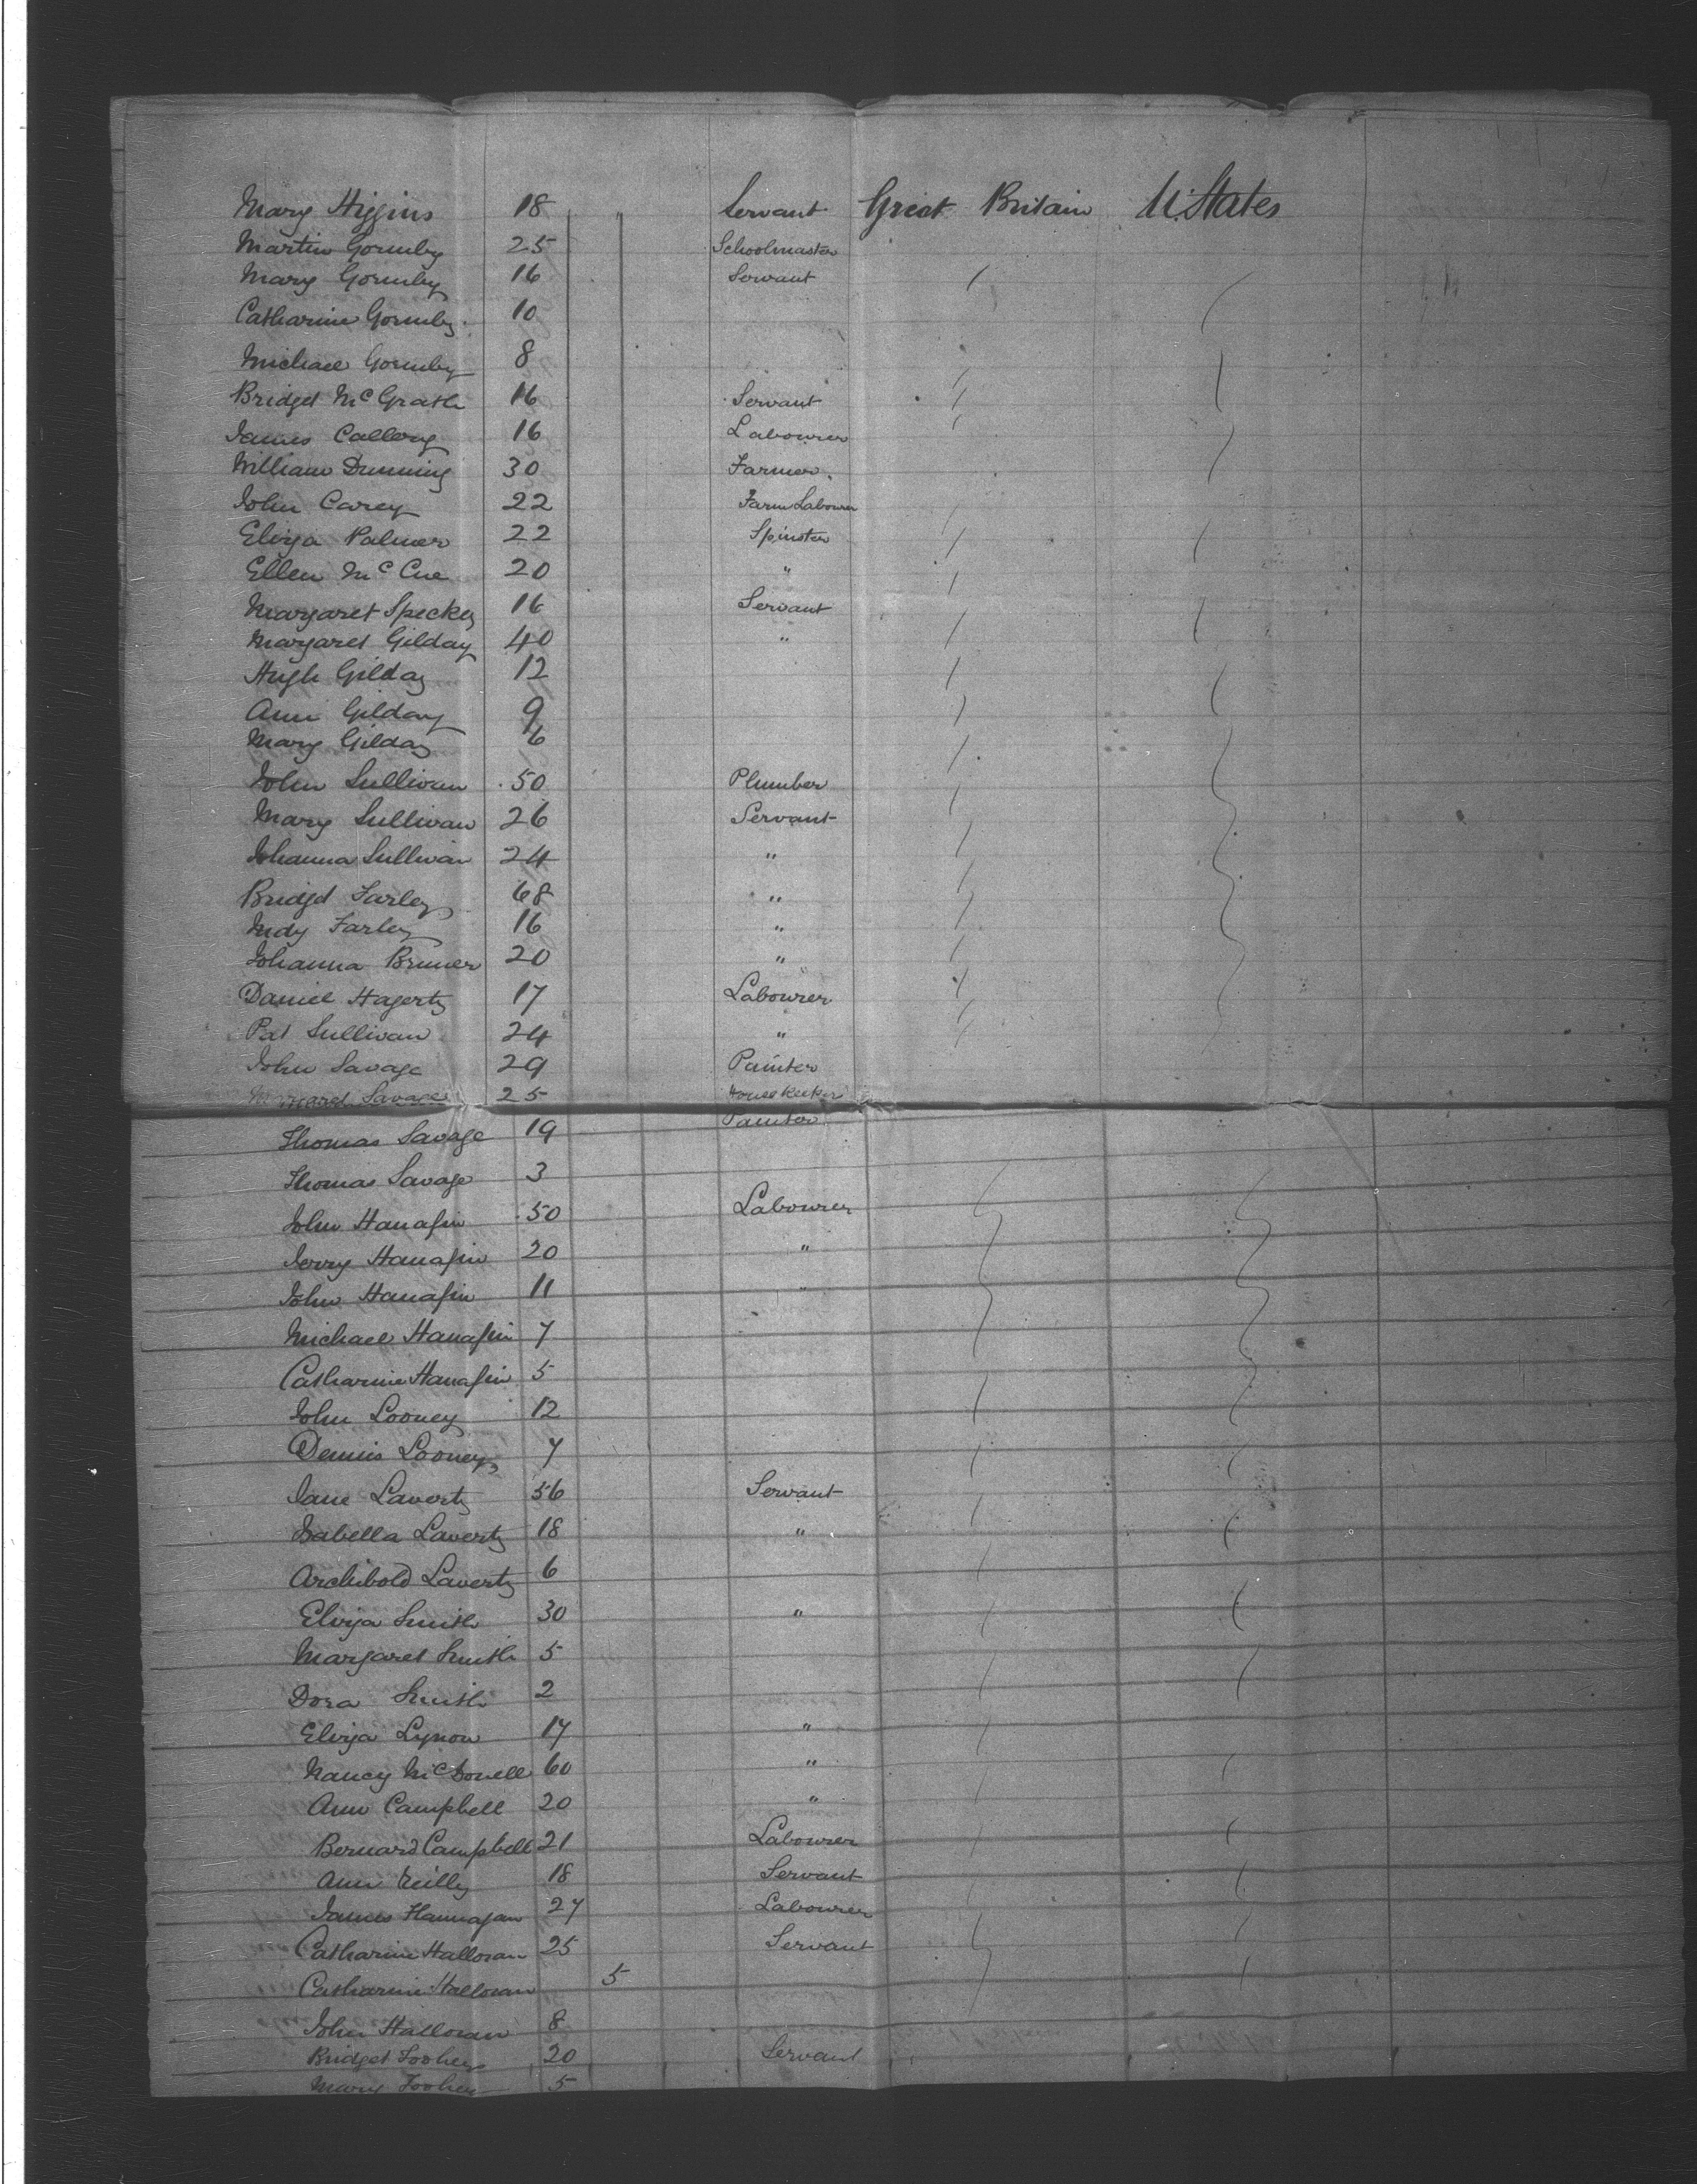 Mary Higgins 18 " Servant Great Britain U. States
Martin Gormby 25 Schoolmaster
Mary Gormby 16 Servant
Catharine Gormby 10
Michael Gormby 8
Bridget McGrath 16 Servant
James Callery 16 Labourer
William Dunning 30 Farmer
John Carey 22 Farm Labourer
Eliza Palmer 22 Spinster
Ellen McCue 20 "
Margaret Speckey 16 Servant
Margaret Gilday 40 "
Hugh Gilday 12
Ann Gilday 9
Mary Gilday 6
John Sullivan 50 Plumber
Mary Sullivan 26 Servant
Johanna Sullivan 24 "
Bridget Farley 68 "
Judy Farley 16 "
Johanna Bruner 20 "
Daniel Hagerty 17 Labourer
Pat Sullivan 24 "
John Savage 29 Painter
Margaret Savage 25 Housekeeper
Thomas Savage 19 Painter
Thomas Savage 3
John Hanafin 50 Labourer
Jerry Hanafin 20 "
John Hanafin 11 "
Michael Hanafin 7
Catharine Hanafin 5
John Looney 12
Dennis Looney 7
Jane Laverty 56 Servant
Isabella Laverty 18 "
Archibold Laverty 6
Eliza Smith 30 "
Margaret Smith 5
Dora Smith 2
Eliza Lynow 17 "
Nancy McDonell 60 "
Ann Campbell 20 "
Bernard Campbell 21 Labourer
Ann Reilly 18 Servant
James Flannagan 27 Labourer
Catharine Halloran 25 Servant
Catharine Halloran 5
John Halloran 8
Bridget Toohey 20 Servant
Mary Toohey 5